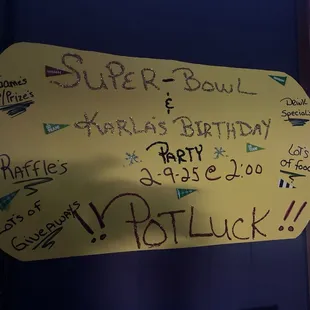 Games
/Prize's
Super-Bowl
&
Karla's Birthday
Party
2-9-25 @ 2:00
Drink
Specials
Lots
of food
Raffle's
Lots of
Giveaways
!! PotLuck !!